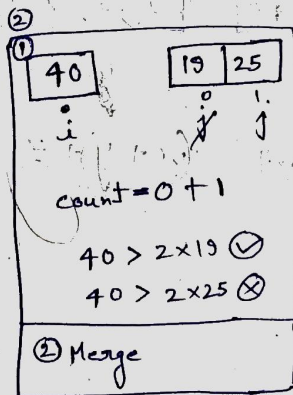 ②
①
40
19 25
0 1.
i j j
count = 0 + 1
40 > 2×19 ✓
40 > 2×25 ✗
② Merge